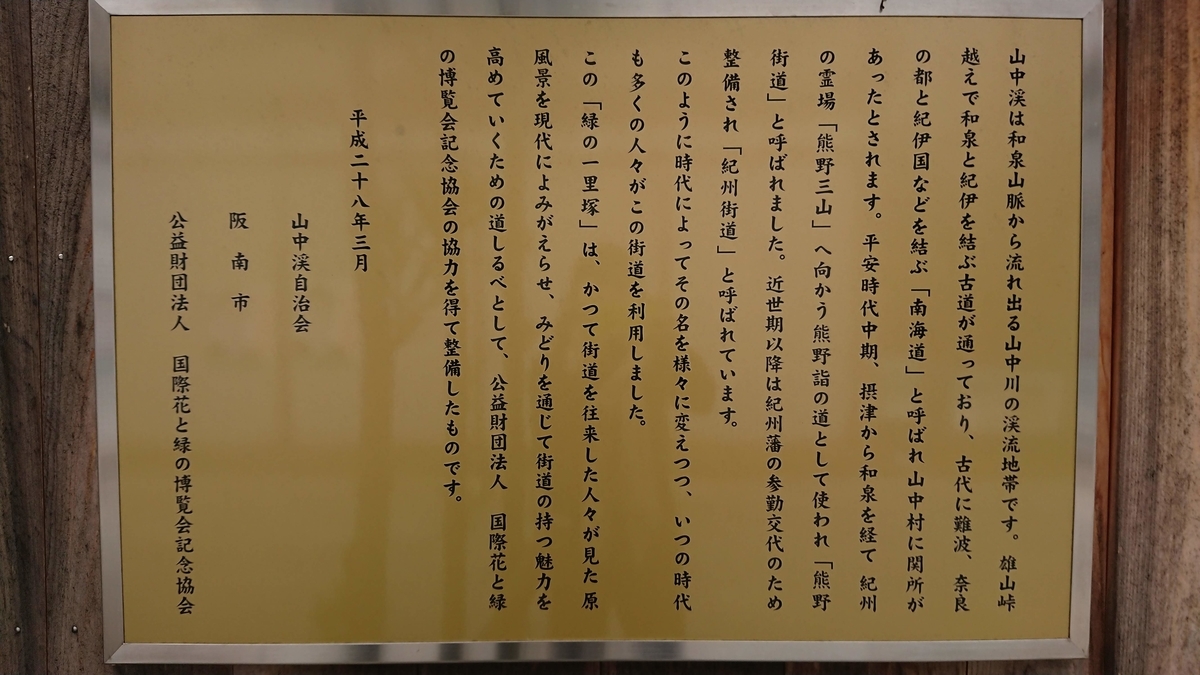 山中渓は和泉山脈から流れ出る山中川の渓流地帯です。雄山峠
越えで和泉と紀伊を結ぶ古道が通っており、古代に難波、奈良
の都と紀伊国などを結ぶ「南海道」と呼ばれ山中村に関所が
あったとされます。平安時代中期、摂津から和泉を経て 紀州
の霊場「熊野三山」へ向かう熊野詣の道として使われ「熊野
街道」と呼ばれました。近世期以降は紀州藩の参勤交代のため
整備され「紀州街道」と呼ばれています。
このように時代によってその名を様々に変えつつ、いつの時代
も多くの人々がこの街道を利用しました。
この「緑の一里塚」は、かつて街道を往来した人々が見た 原
風景を現代によみがえらせ、みどりを通じて街道の持つ魅力を
高めていくための道しるべとして、公益財団法人 国際花と緑
の博覧会記念協会の協力を得て整備したものです。
平成二十八年三月
山中渓自治会
阪南市
公益財団法人 国際花と緑の博覧会記念協会